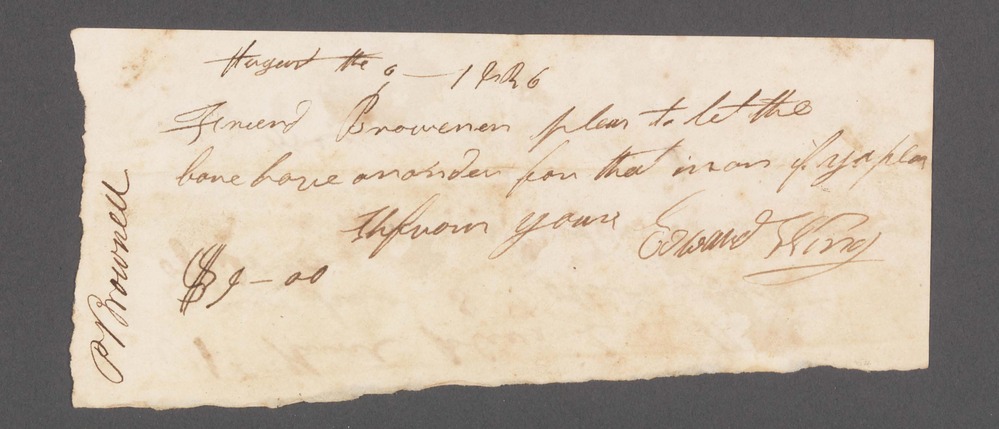 August the 6 — 1826
Friend Browenen pleas to let the
bare have an order for that iron if yo plea
from yours Edward King
$9-00
P Brownell